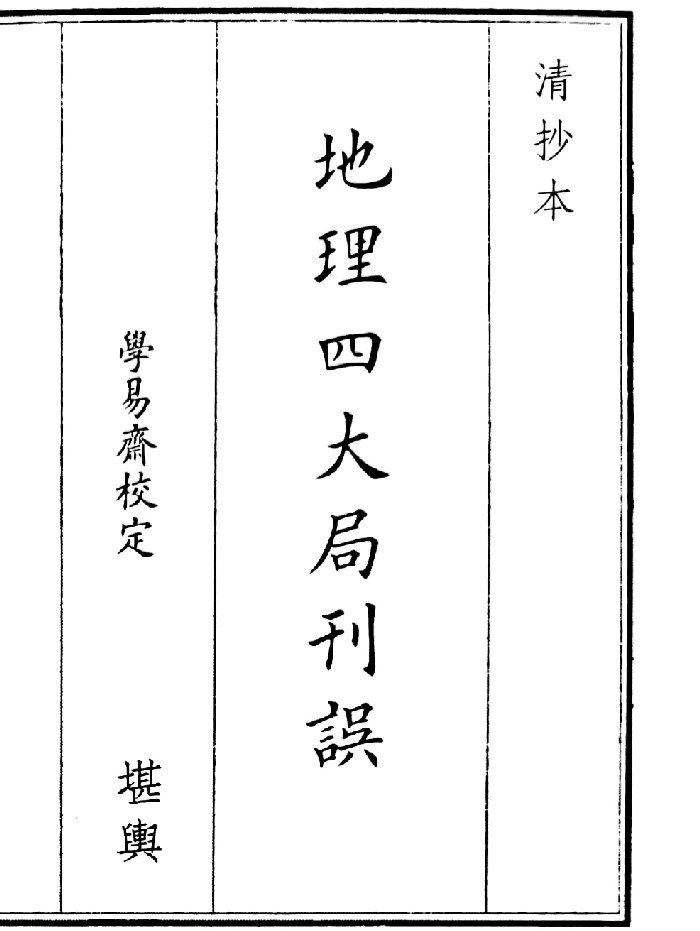 清抄本
地理四大局刊誤
學易齋校定
堪輿